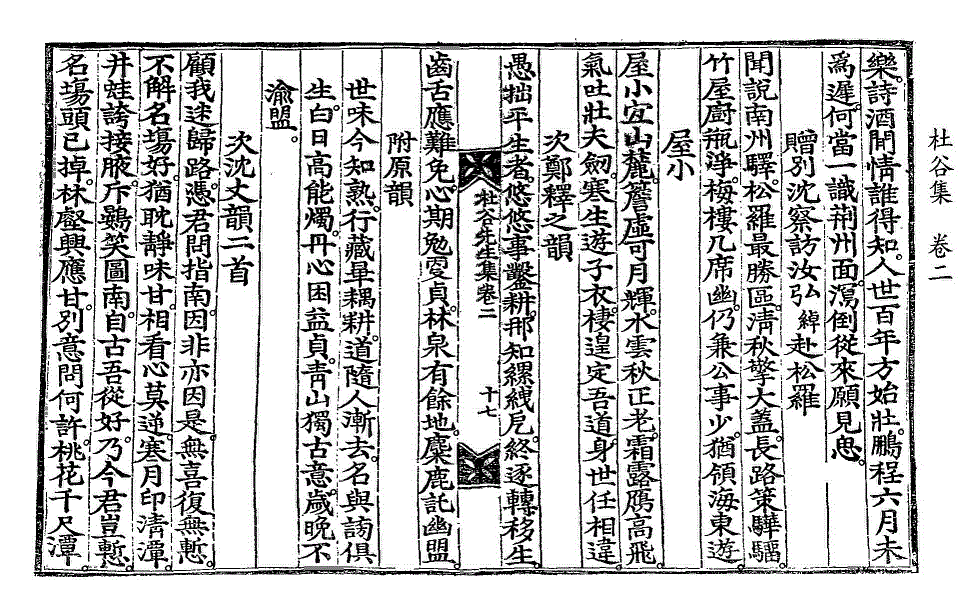 杜谷集 卷二
樂。詩酒閒情誰得知。人世百年方始壯。鵬程六月未
爲遲。何當一識荆州面。瀉倒從來願見思。
贈別沈察訪汝弘綽赴松羅
聞說南州驛。松羅最勝區。淸秋擎大蓋。長路策驊騮。
竹屋廚甁淨。梅樓几席幽。仍兼公事少。猶領海東遊。
屋小
屋小宜山麓。簷虛可月輝。水雲秋正老。霜露鴈高飛。
氣吐壯夫劒。寒生遊子衣。棲遑定吾道。身世任相違。
次鄭釋之韻
愚拙平生者。悠悠事鑿耕。那知縲絏厄。終逐轉移生。
杜谷先生集卷二 十七
齒舌應難免。心期勉更貞。林泉有餘地。麋鹿託幽盟。
附原韻
世味今知熟。行藏畢耦耕。道隨人漸去。名與謗俱
生。白日高能燭。丹心困益貞。靑山獨古意。歲晩不
渝盟。
次沈丈韻二首
顧我迷歸路。憑君問指南。因非亦因是。無喜復無慙。
不解名場好。猶耽靜味甘。相看心莫逆。寒月印淸潭。
井蛙誇接腋。斥鷃笑圖南。自古吾從好。乃今君豈慙。
名場頭已掉。林壑興應甘。別意問何許。桃花千尺潭。